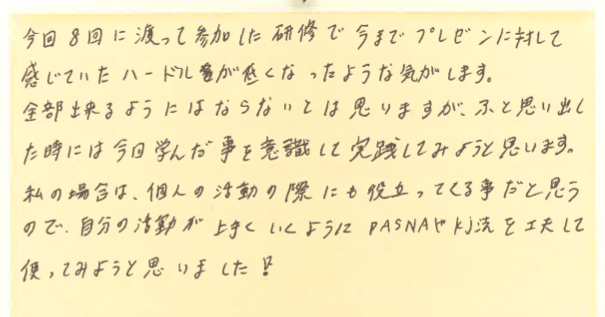 今回8回に渡って参加した研修で今までプレゼンに対して
感じていたハードルが低くなったような気がします。
全部出来るようにはならないとは思いますが、ふと思い出し
た時には今回学んだ事を意識して実践してみようと思います。
私の場合は、個人の活動の際にも役立ってくる事だと思う
ので、自分の活動が上手くいくようにPASNAやKJ法を工夫して
使ってみようと思いました!